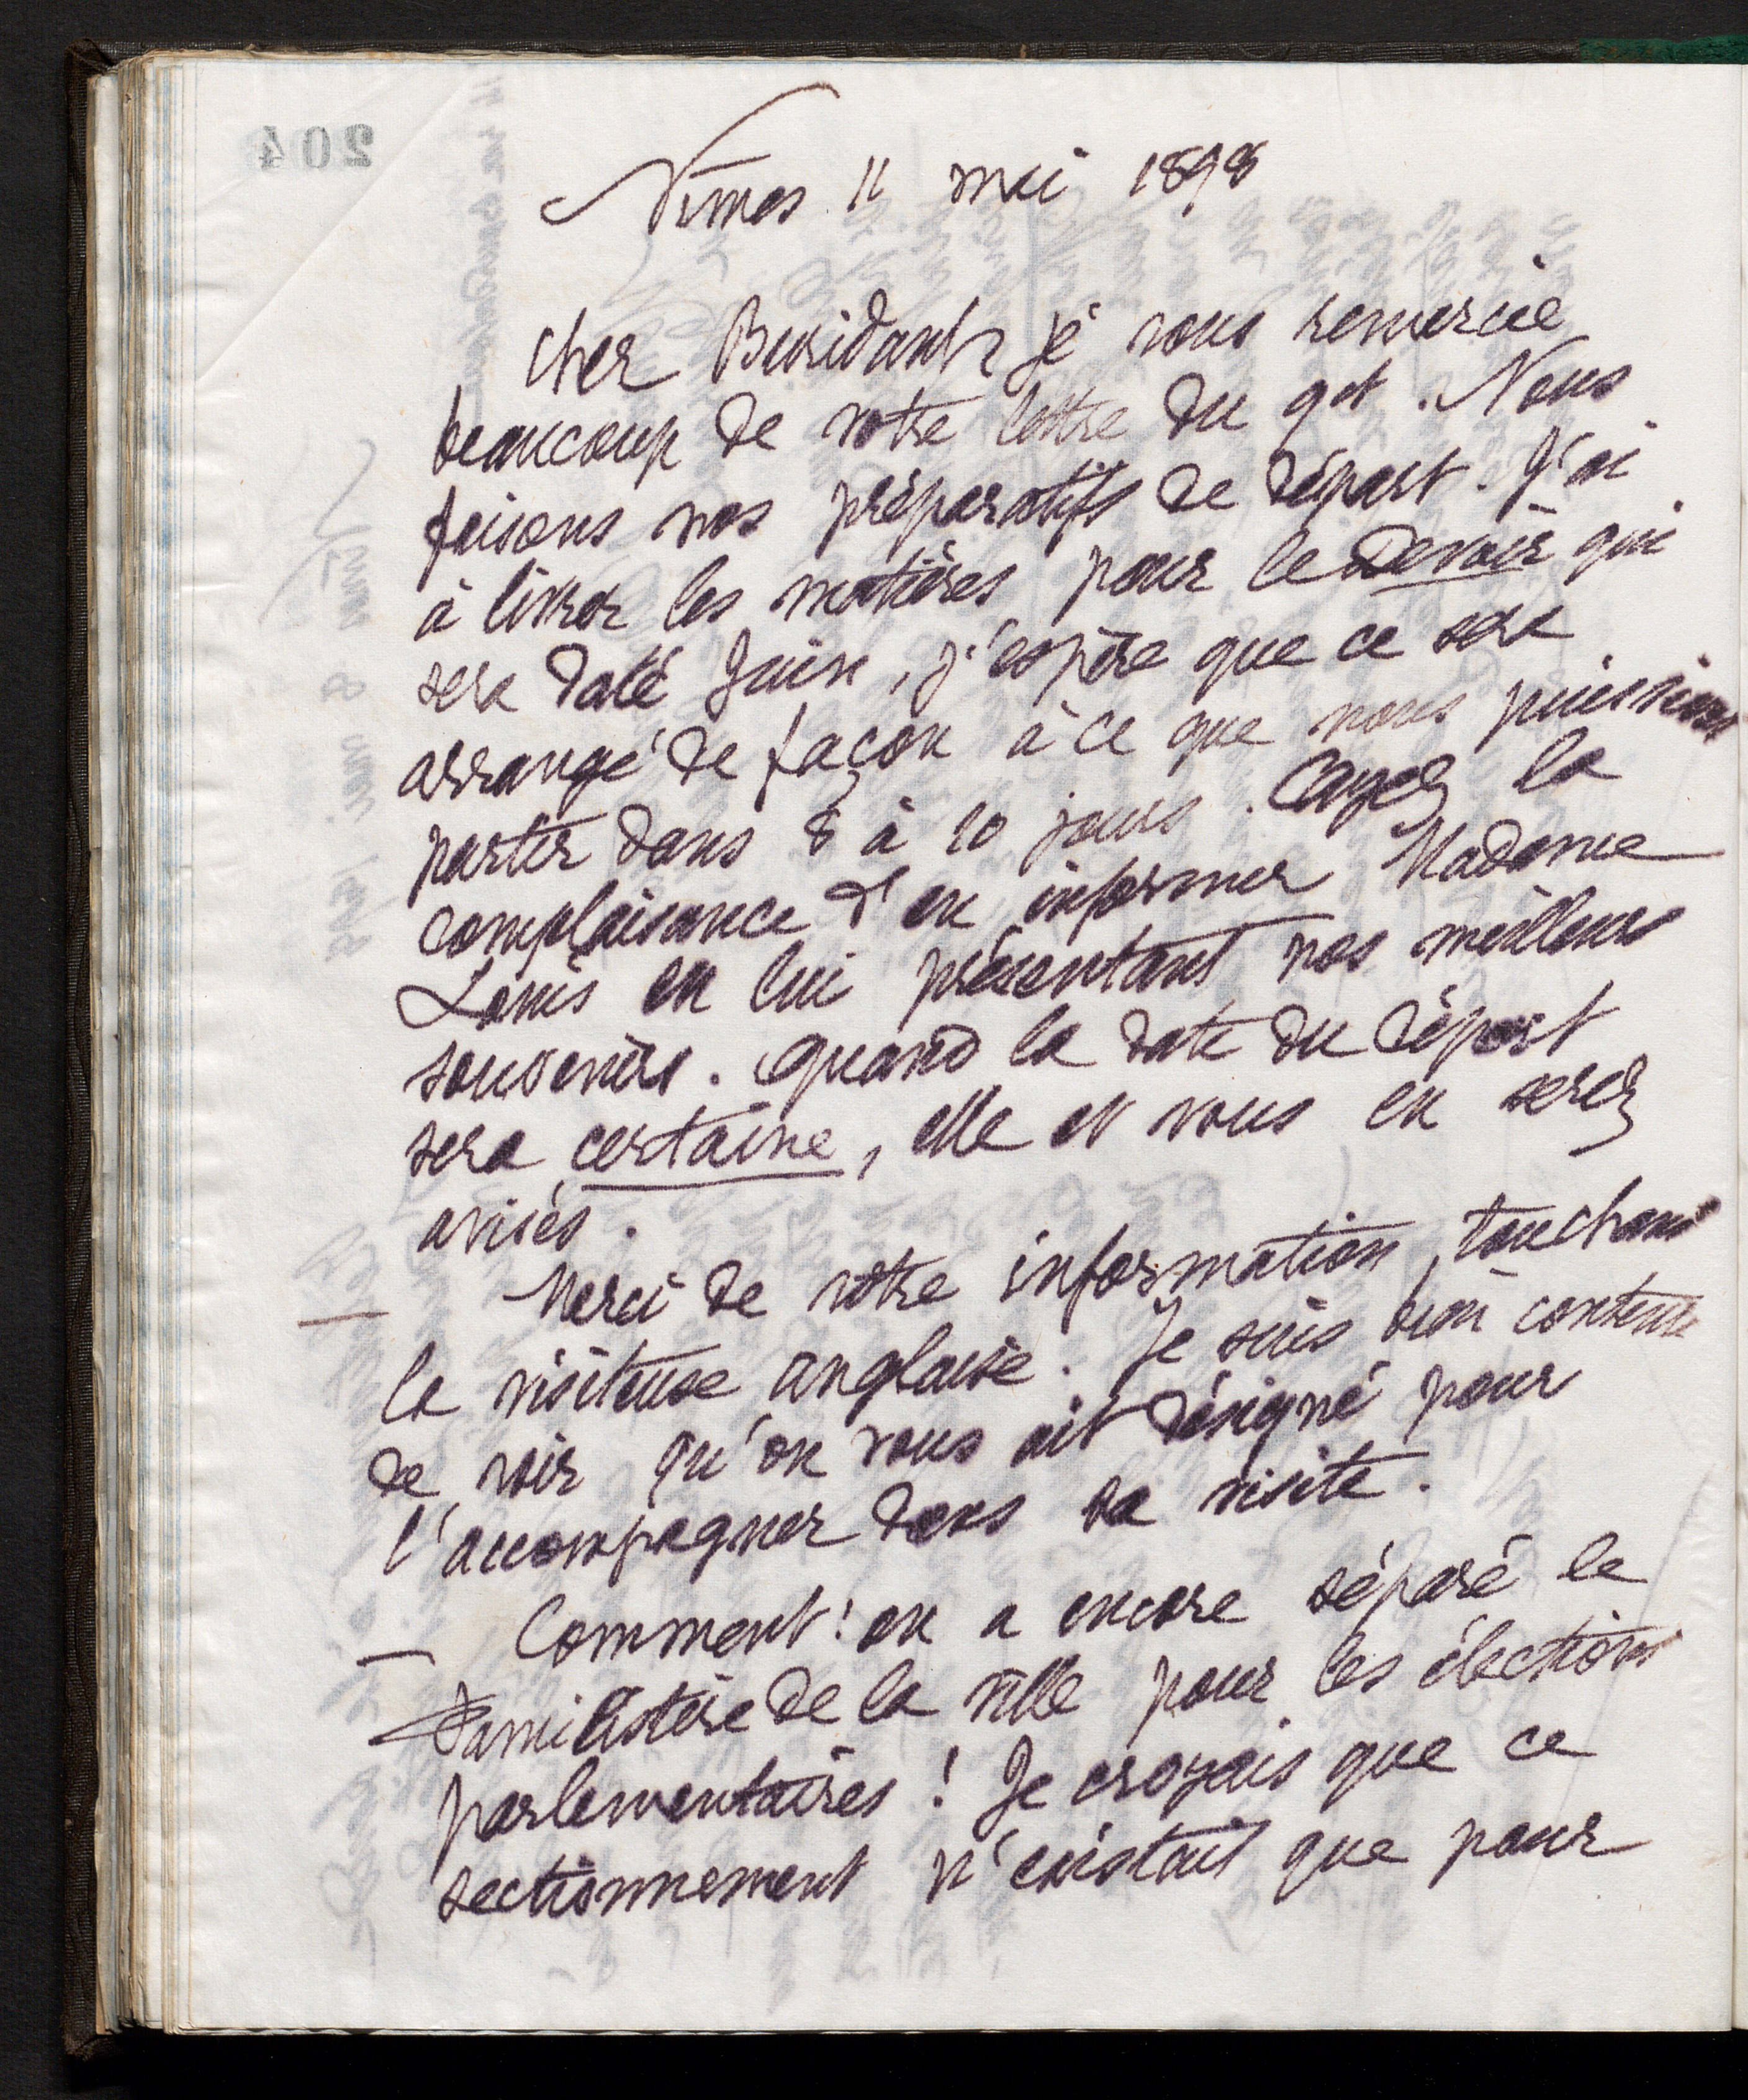 204
Nîmes 11 mai 1898
Cher Buridant, je vous remercie
beaucoup de votre lettre du 9 ct. Nous
faisons nos préparatifs de départ. J'ai
à livrer les matières pour le Devoir qui
sera daté Juin, j'espère que ce sera
arrangé de façon à ce que nous puissions
partir dans 8 à 10 jours. Ayez la
complaisance d'en informer Madame
Louis en lui présentant nos meilleurs
souvenirs. Quand la date du départ
sera certaine, elle et vous en serez
avisés.
— Merci de votre information touchant
la visiteuse anglaise. Je suis bien contente
de voir qu'on vous ait désigné pour
l'accompagner dans sa visite.
— Comment! on a encore séparé le
Familistère de la ville pour les élections
parlementaires! Je croyais que ce
sectionnement n'existait que pour